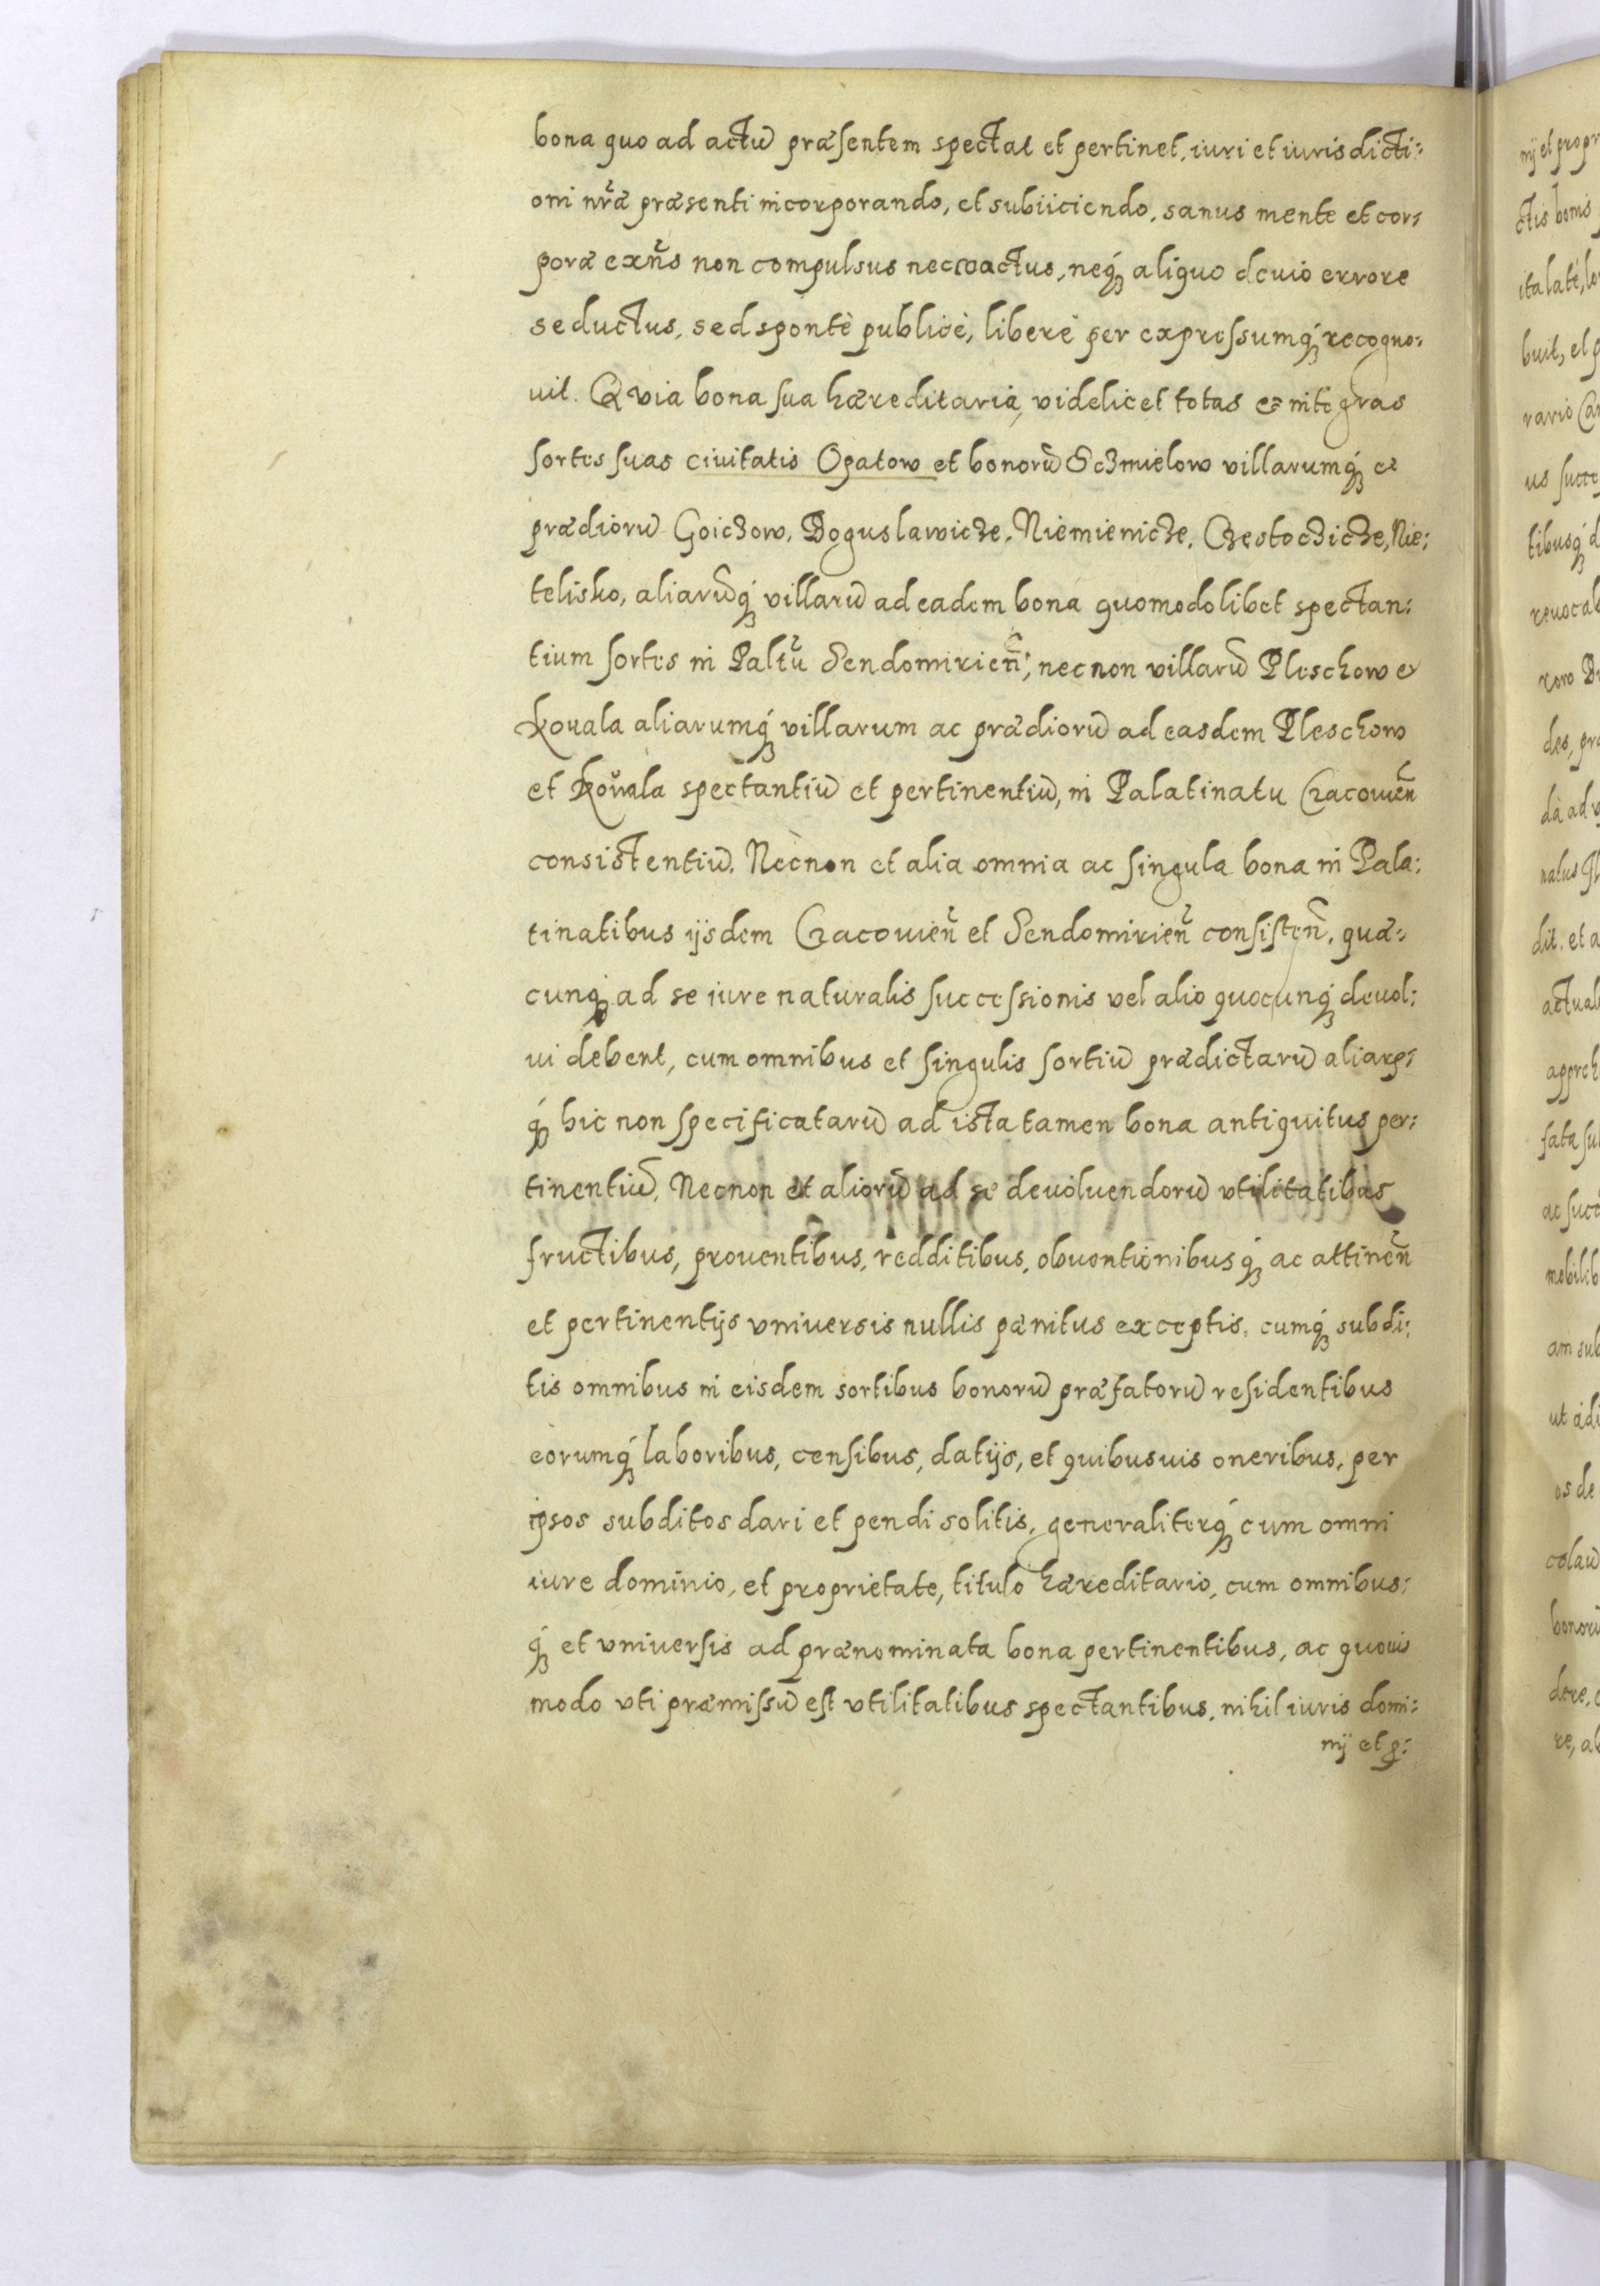 bona quo ad actū præsentem spectat et pertinet, iuri et iurisdicti:
oni nr̃æ præsenti incorporando, et subiiciendo, sanus mente et cor:
poræ exñs non compulsus nec coactus, neq́ʒ aliquo deuio errore
seductus, sed spontè publicè, liberè per expressumq́ʒ recogno:
uit. Quia bona sua hæreditaria, videlicet totas et integras
sortes suas ciuitatis Opatow et bonorū Sczmielow villarumq́ʒ et
prædiorū Goiczow, Boguslawicze, Niemienicze, Czestoczicze, Nie:
telisko, aliarūq́ʒ villarū ad eadem bona quomodolibet spectan:
tium sortes in Palt̃u Sendomirień; necnon villarū Pleschow et
Kouala aliarumq́ʒ villarum ac prædiorū ad easdem Pleschow
et Kouala spectantiū et pertinentiū, in Palatinatu Cracouieñ
consistentiū. Necnon et alia omnia ac singula bona in Pala:
tinatibus ijsdem Cracouieñ et Sendomirieñ consisteñ, quæ:
cunqʒ ad se iure naturalis successionis vel alio quocunq́ʒ deuol:
ui debent, cum omnibus et singulis sortiū prædictarū aliarꝝ:
q́ʒ hic non specificatarū ad ista tamen bona antiquitus per:
tinentiū, Necnon et aliorū ad se deuoluendorū vtilitatibus
fructibus, prouentibus, redditibus, obuentionibusq́ʒ ac attineñ
et pertinentijs vniuersis nullis pænitus exceptis, cumq́ʒ subdi:
tis omnibus in eisdem sortibus bonorū præfatorū residentibus
eorumq́ʒ laboribus, censibus, datijs, et quibusuis oneribus, per
ipsos subditos dari et pendi solitis, generaliterq́ʒ cum omni
iure dominio, et proprietate, titulo hæreditario, cum omnibus:
q́ʒ et vniuersis ad prænominata bona pertinentibus, ac quouis
modo vti præmissū est vtilitatibus spectantibus, nihil iuris domi:
nij et p: